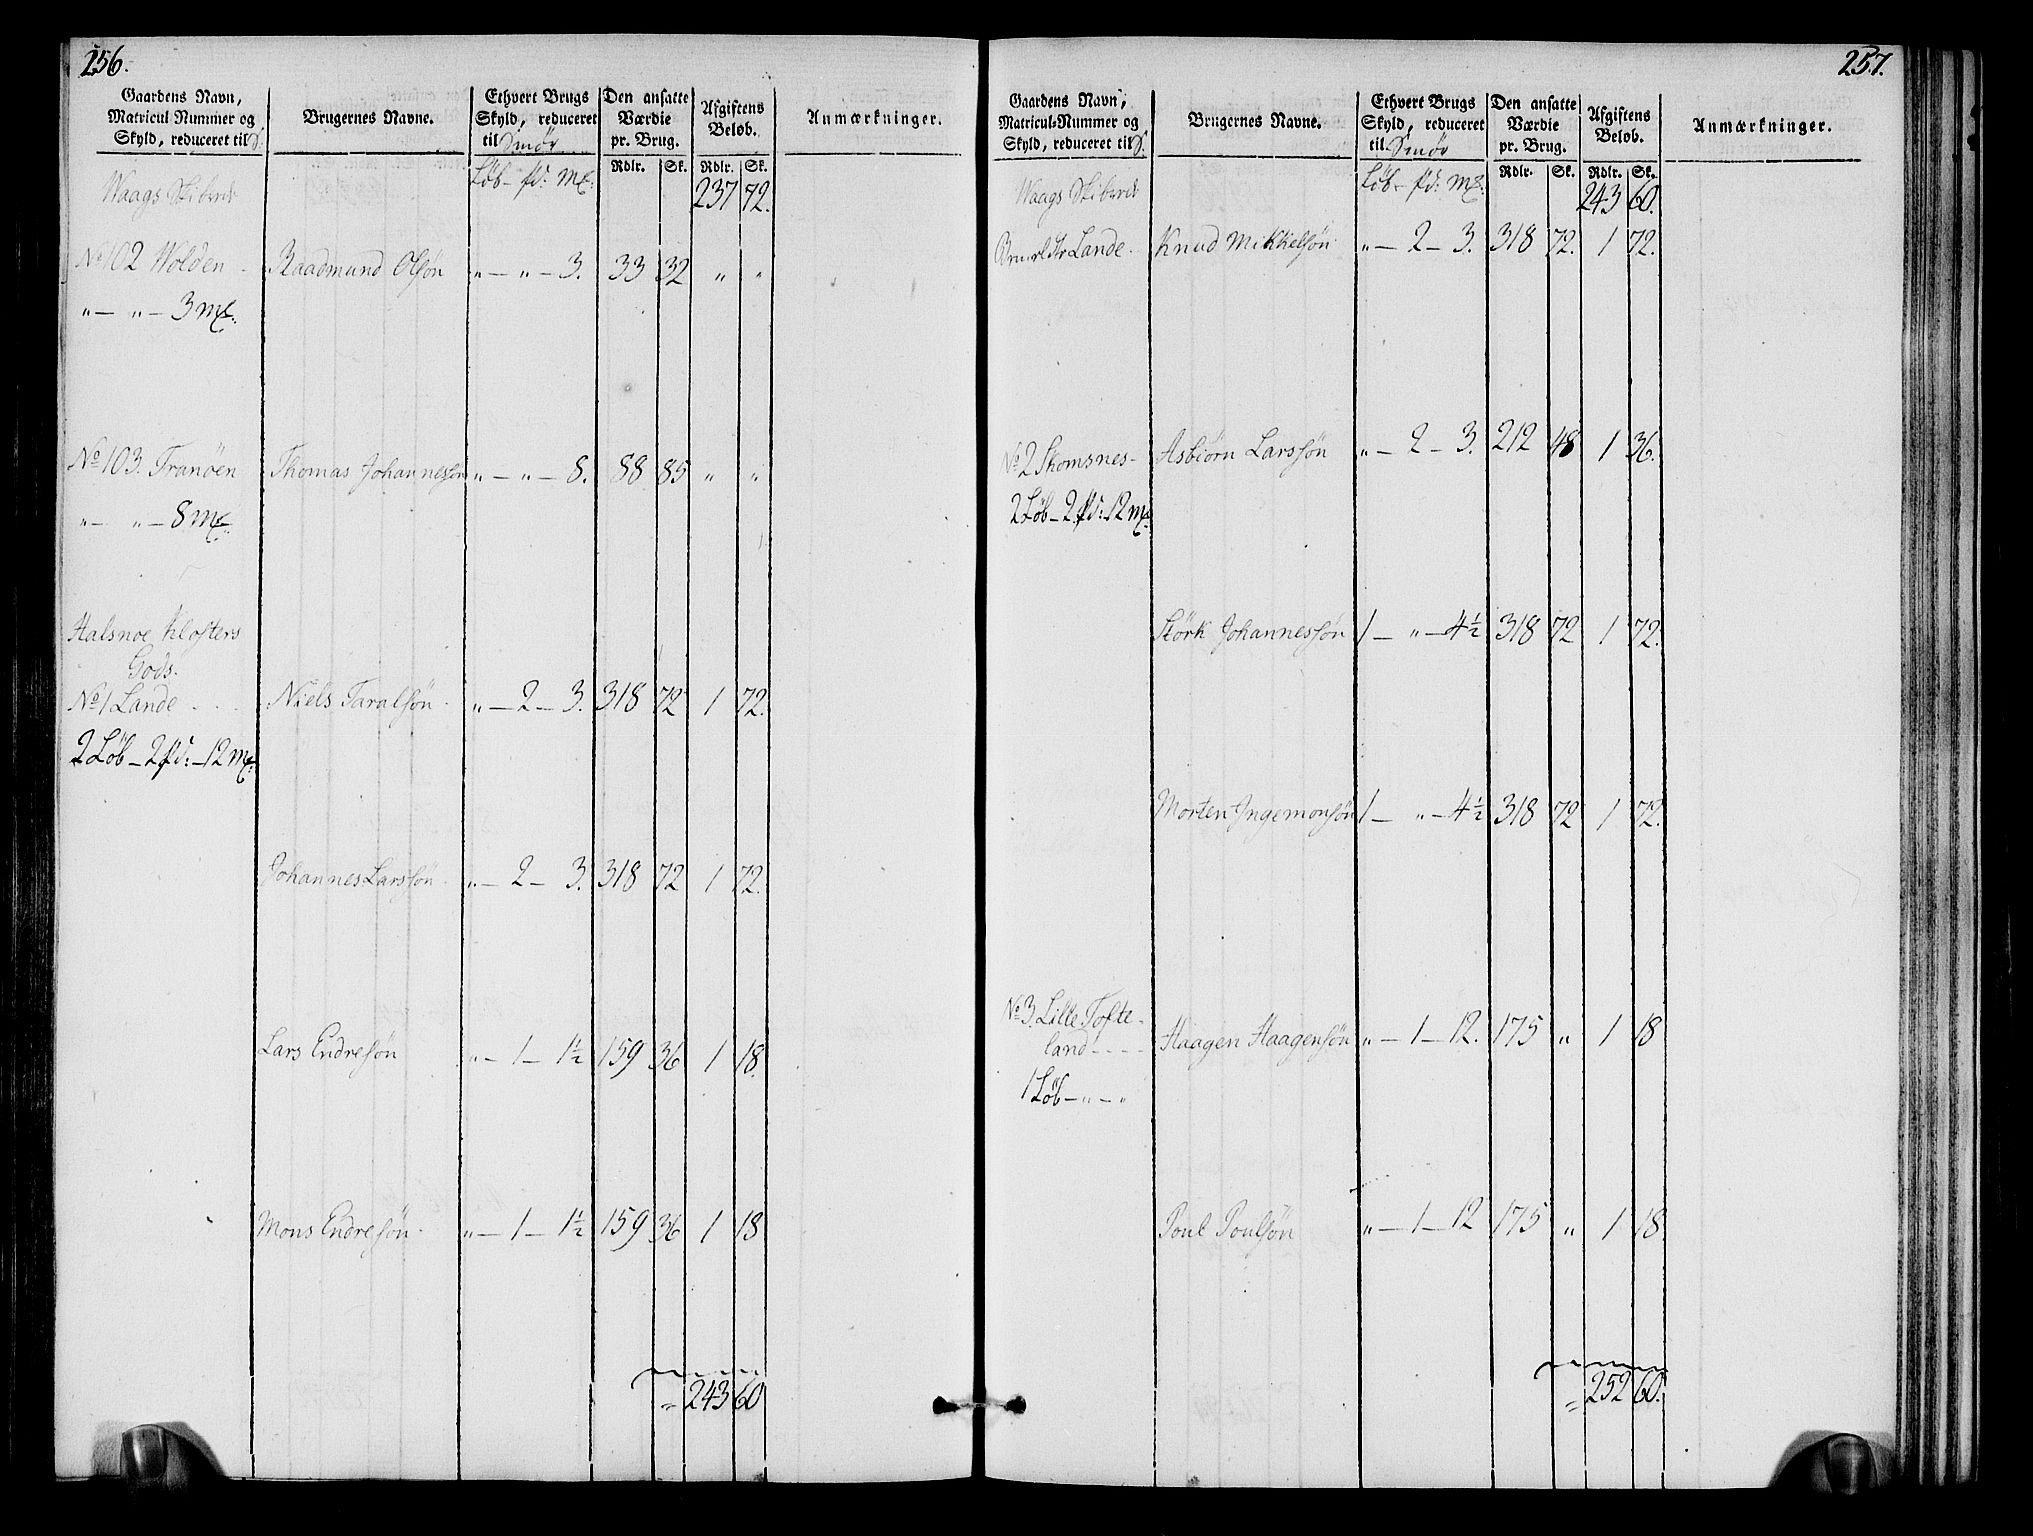 256.
Gaardens Navn, Matricul Nummer og Skyld, reduceret til S.
Brugernes Navne.
Ethvert Brugs Skyld, reduceret til Smör
Den ansatte Værdie pr. Brug.
Afgiftens Beløb.
Anmærkninger.
Löb - pd: mk:
Rdlr. Sk. Rdlr. Sk.
Waags Skibrede 237 72.
No 102 Wolden - Raadmund Olsön „ - „ - 3. 33 32 „ „
„ - „ - 3 mk:
No 103. Tranöen Thomas Johannessön „ - „ - 8. 88 85 „ „
„ - „ - 8 mk:
Halsnoe Klosters
Gods.
No 1 Lande - - - Niels Taralsön - „ - 2 - 3. 318 72 1 72.
2 Löb - 2 pd: - 12 mk:
Johannes Larssön - „ - 2 - 3. 318 72 1 72.
Lars Endresön „ - 1 - 1½ 159 36 1 18.
Mons Endresön - „ - 1 - 1½ 159 36 1 18
= 243 60
257.
Gaardens Navn, Matricul-Nummer og Skyld, reduceret til S.
Brugernes Navne.
Ethvert Brugs Skyld, reduceret til Smör
Den ansatte Værdie pr. Brug.
Afgiftens Beløb.
Anmærkninger.
Löb - pd: mk:
Rdlr. Sk. Rdlr. Sk.
Waags Skibrede 243 60.
Lande - Knud Mikkelsön „ - 2 - 3. 318 72. 1 72.
No 2 Skomsnes - Asbiörn Larssön „ - 2 - 3. 212 48 1 36.
2 Löb - 2 pd: - 12 mk:
Störk Johannessön 1 - „ - 4½ 318 72 1 72.
Morten Ingemonsön 1 - „ - 4½ 318 72 1 72.
No 3. Lille Tofte-
land - - - - Haagen Haagensön „ - 1 - 12. 175 „ 1 18
1 Löb - „ - „
Poul Poulsön „ - 1 - 12 175 „ 1 18
= 252 60.